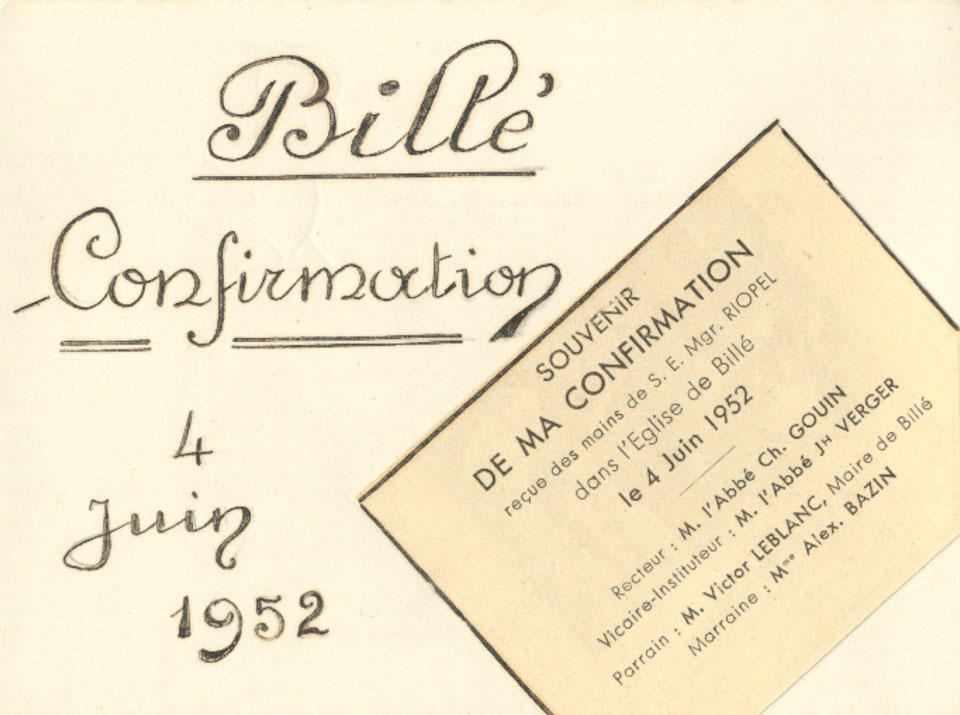 Billé
Confirmation
4
Juin
1952
SOUVENIR
DE MA CONFIRMATION
reçue des mains de S. E. Mgr. RIOPEL
dans l'Eglise de Billé
le 4 Juin 1952
Recteur : M. l'Abbé Ch. GOUIN
Vicaire-Instituteur : M. l'Abbé Jᴴ VERGER
Parrain : M. Victor LEBLANC, Maire de Billé
Marraine : Mᵐᵉ Alex. BAZIN